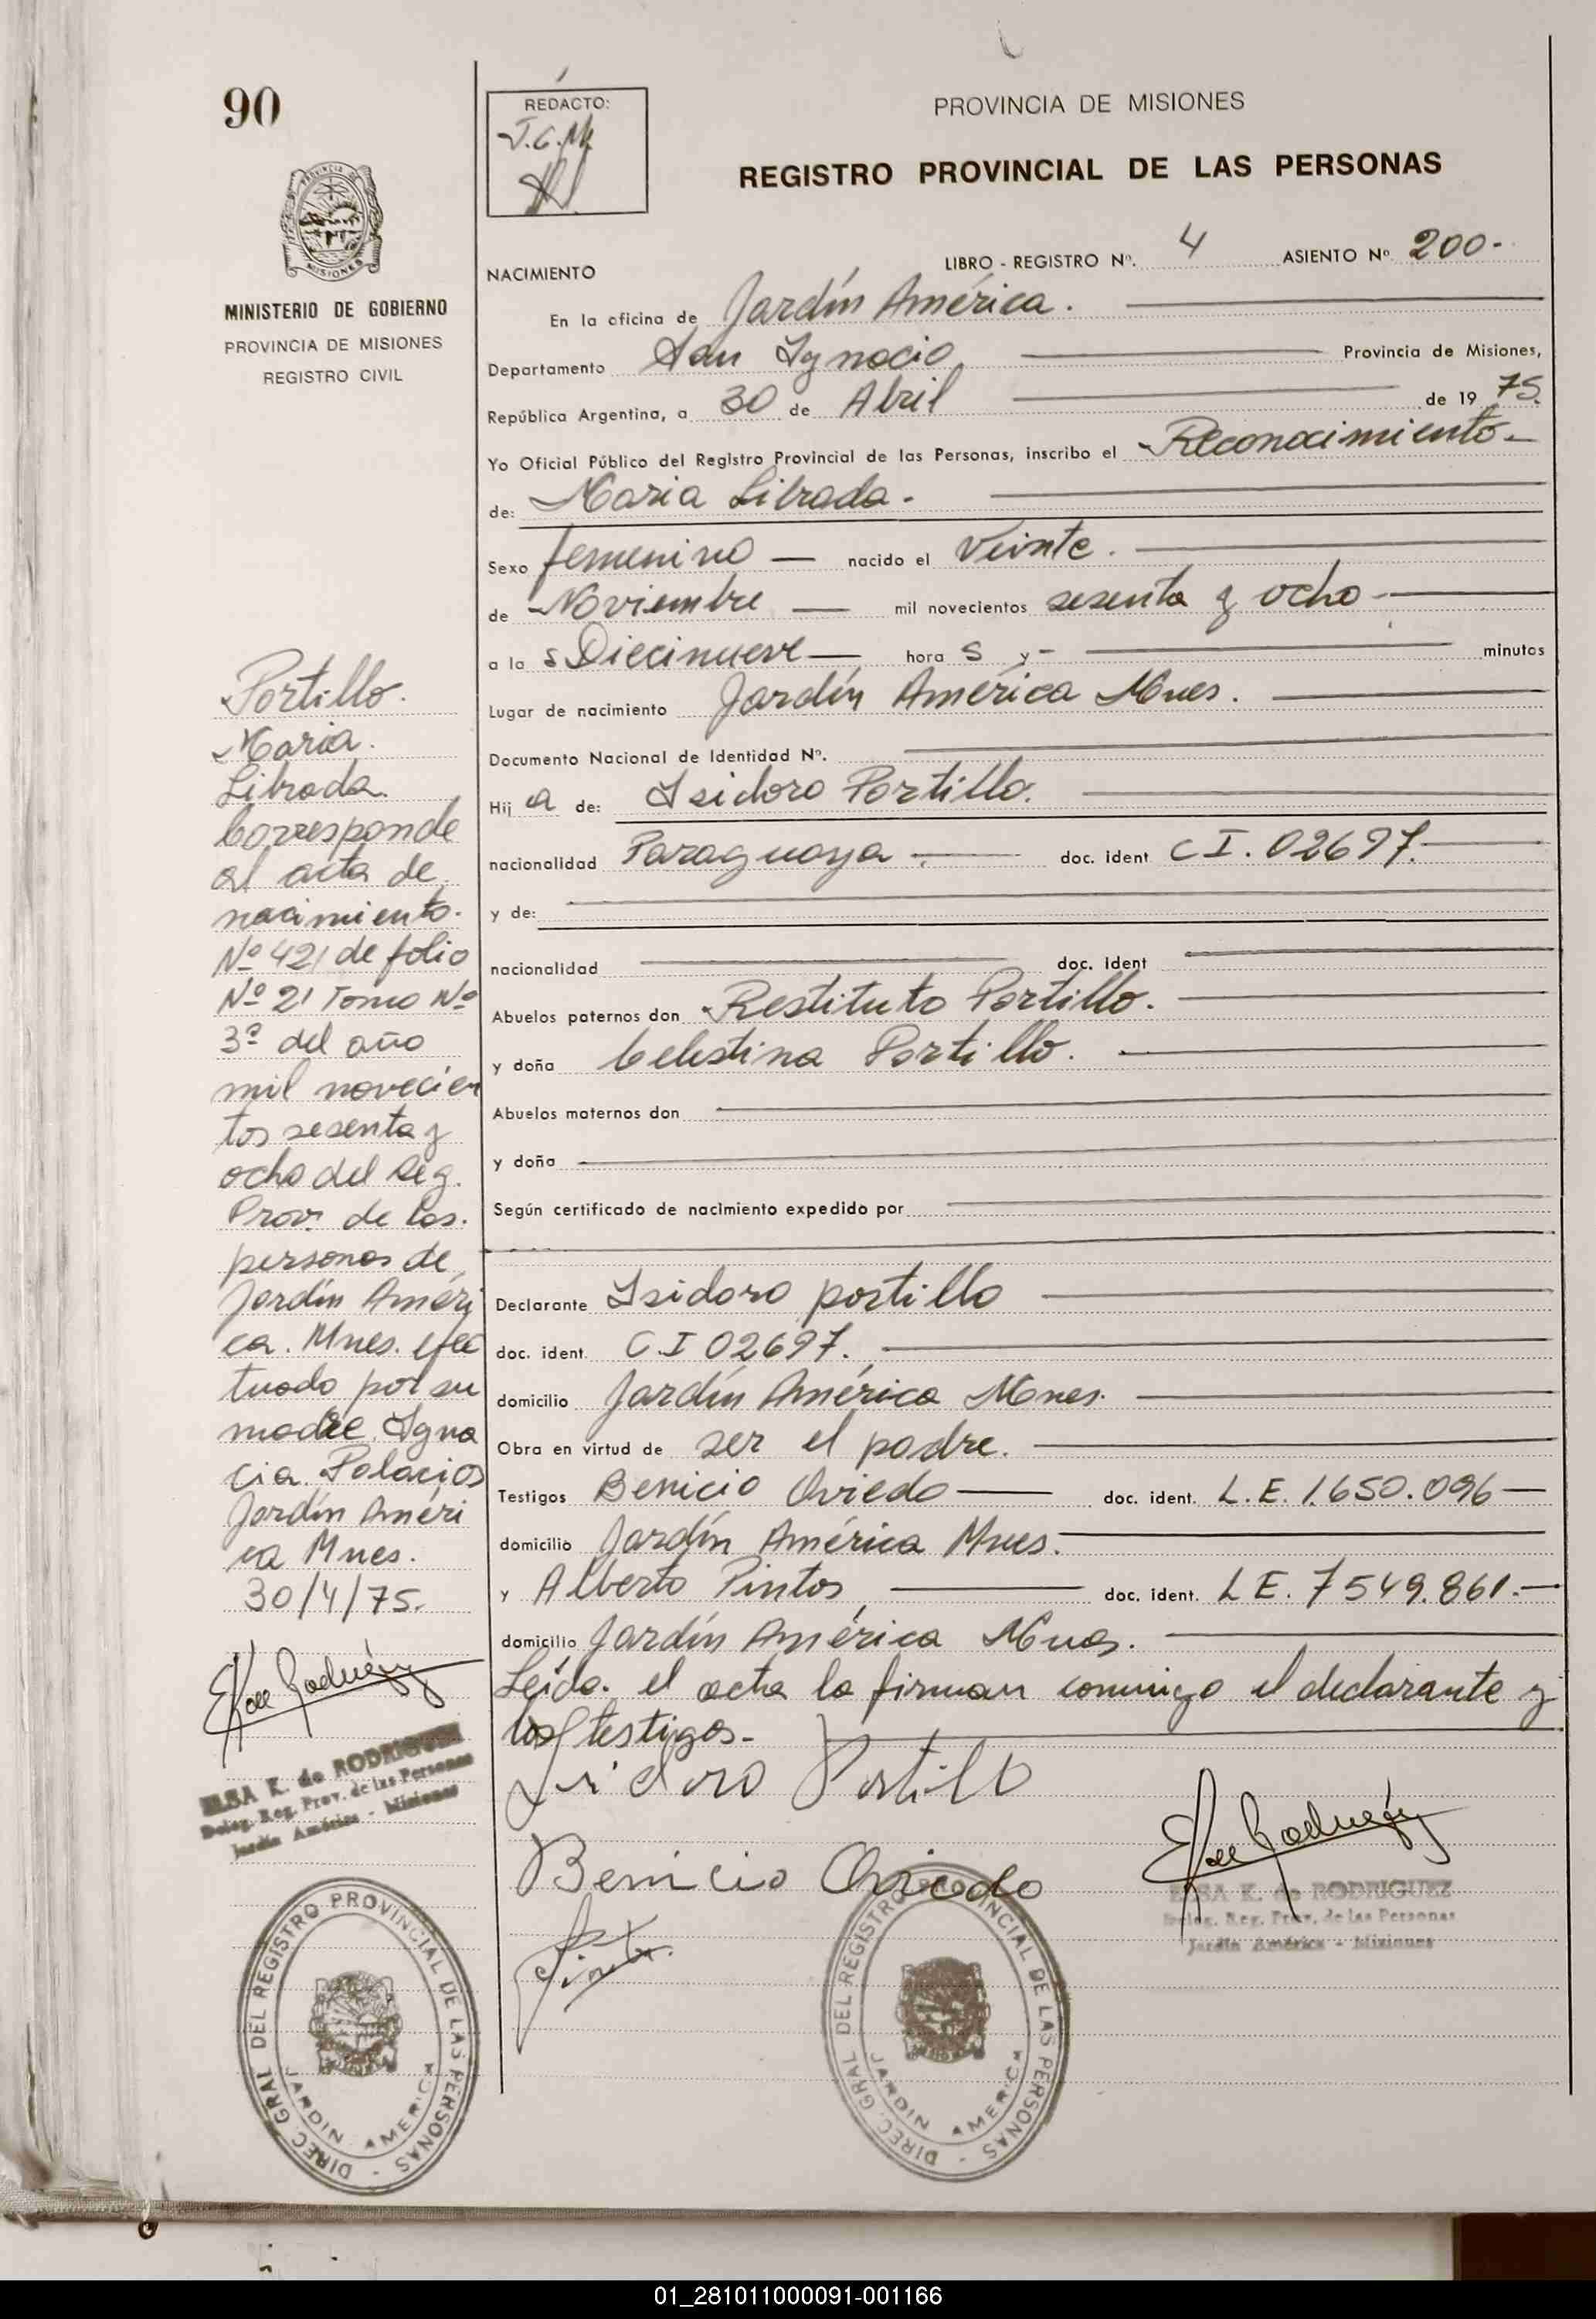 90
REDACTO:
J.C.M.
PROVINCIA DE MISIONES
REGISTRO PROVINCIAL DE LAS PERSONAS
PROVINCIA DE
MISIONES
MINISTERIO DE GOBIERNO
PROVINCIA DE MISIONES
REGISTRO CIVIL
NACIMIENTO
LIBRO - REGISTRO Nº. 4 ASIENTO Nº 200-
En la oficina de Jardín América.
Departamento San Ignacio Provincia de Misiones,
República Argentina, a 30 de Abril de 19 75.
Yo Oficial Público del Registro Provincial de las Personas, inscribo el Reconocimiento-
de: Maria Librada.
Sexo femenino nacido el Veinte.
de Noviembre mil novecientos sesenta y ocho
a la s Diecinueve hora s y - minutos
Lugar de nacimiento Jardín América Mnes.
Documento Nacional de Identidad Nº.
Hij a de: Isidoro Portillo.
nacionalidad Paraguaya doc. ident C I. 02697.
y de:
nacionalidad doc. ident
Abuelos paternos don Restituto Portillo.
y doña Celestina Portillo.
Abuelos maternos don
y doña
Según certificado de nacimiento expedido por
Declarante Isidoro portillo
doc. ident. C.I 02697.
domicilio Jardín América Mnes.
Obra en virtud de ser el padre.
Testigos Benicio Oviedo doc. ident. L.E. 1.650.096
domicilio Jardín América Mnes.
y Alberto Pintos doc. ident. L E. 7549.861.
domicilio Jardín América Mnes.
Leída. el acta la firman conmigo el declarante y
los testigos.
Isidoro Portillo
Benicio Oviedo
ELSA K. de RODRIGUEZ
Deleg. Reg. Prov. de las Personas
Jardín América - Misiones
DIREC. GRAL DEL REGISTRO PROVINCIAL DE LAS PERSONAS -
JARDIN AMERICA
Portillo.
Maria.
Librada.
Corresponde
al acta de
nacimiento.
Nº 421 de folio
Nº 21 Tomo Nº
3º del año
mil novecien
tos sesenta y
ocho del Reg.
Prov. de las.
personas de
Jardín Améri
ca. Mnes. efec
tuado por su
madre Igna
cia Palacios
Jardín Améri
ca Mnes.
30/4/75.
ELSA K. de RODRIGUEZ
Deleg. Reg. Prov. de las Personas
Jardín América - Misiones
DIREC. GRAL DEL REGISTRO PROVINCIAL DE LAS PERSONAS -
JARDIN AMERICA
01_281011000091-001166